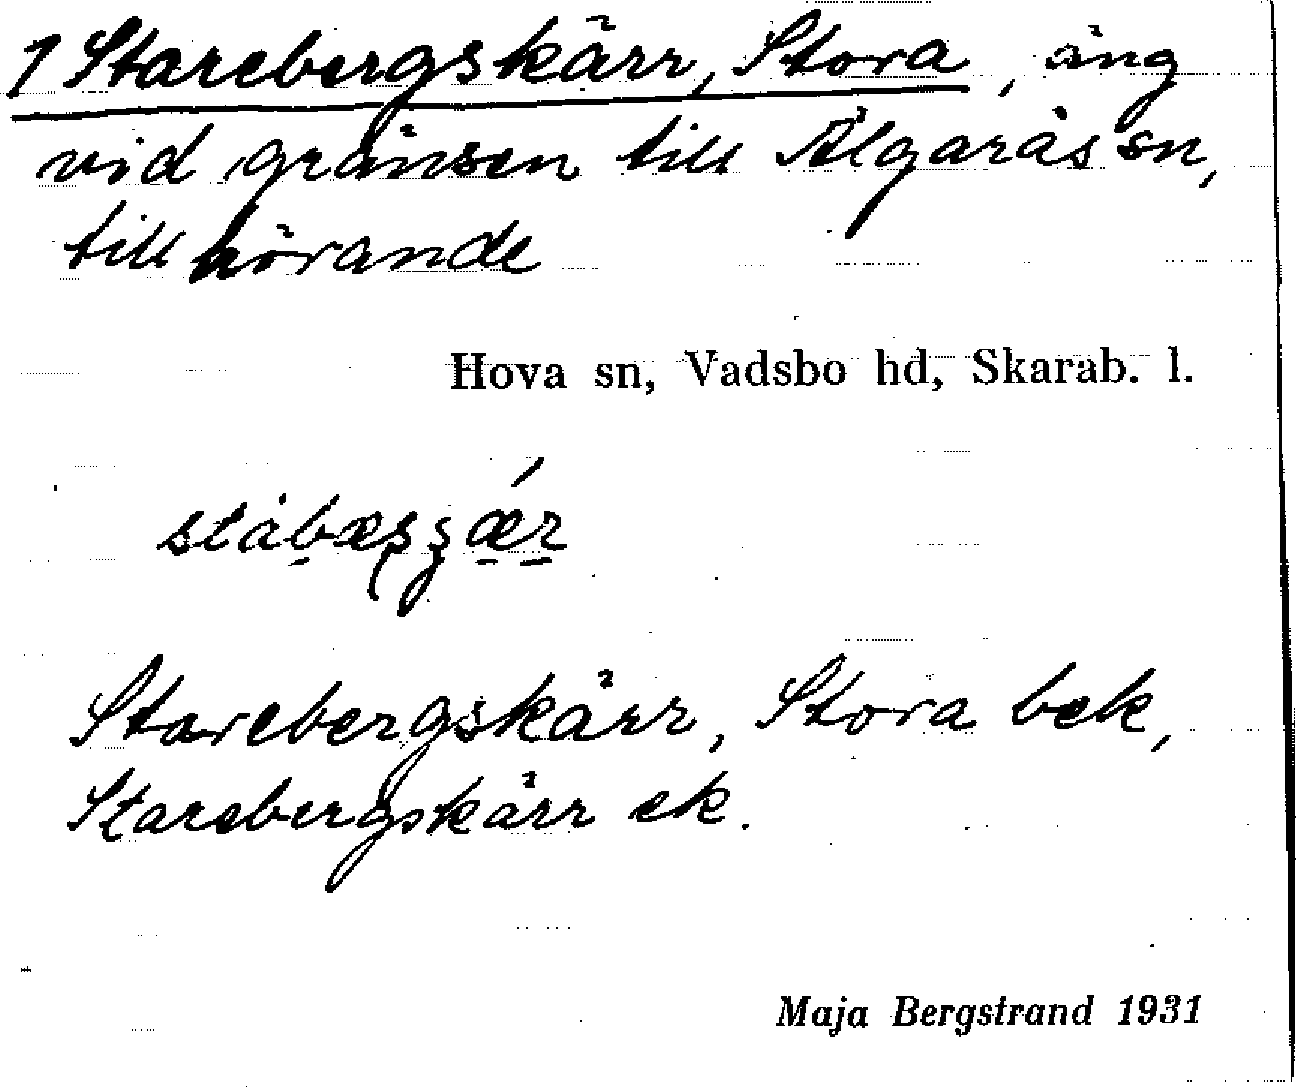 1 Starebergskärr, Stora, äng
vid gränsen till Älgarås sn,
till hörande
Hova sn, Vadsbo hd, Skarab. l.
Starebergskärr, Stora bek,
Starebergskärr ek.
Maja Bergstrand 1931